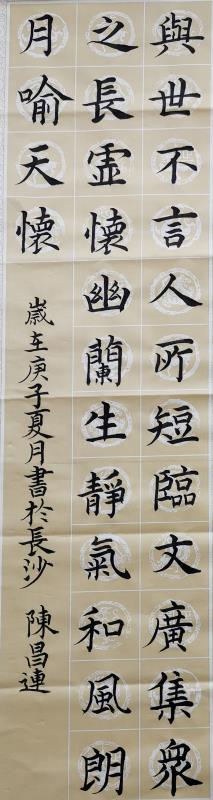 與世不言人所短臨文廣集衆
之長虛懷幽蘭生靜氣和風朗
月喻天懷
嵗在庚子夏月書於長沙 陳昌連